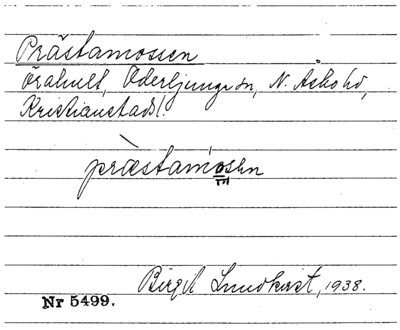 Prästamossen
Örahult, Oderljunga sn, N. Åsbo hd,
Kristianstads l.
præstamosen
m
Birgit Lundkvist, 1938.
Nr 5499.